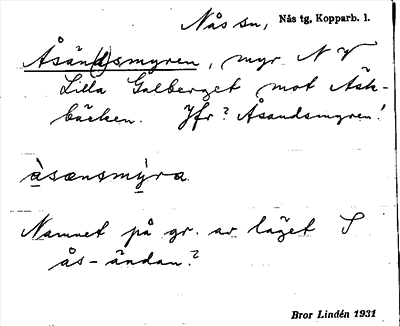 Nås sn, Nås tg, Kopparb. l.
Åsän(d)smyren, myr N V
Lilla Galberget mot Åsk-
bäcken. Jfr? Åsandsmyren!
àsænsmỳra.
Namnet på gr. av läget S
ås-ändan.?
Bror Lindén 1931